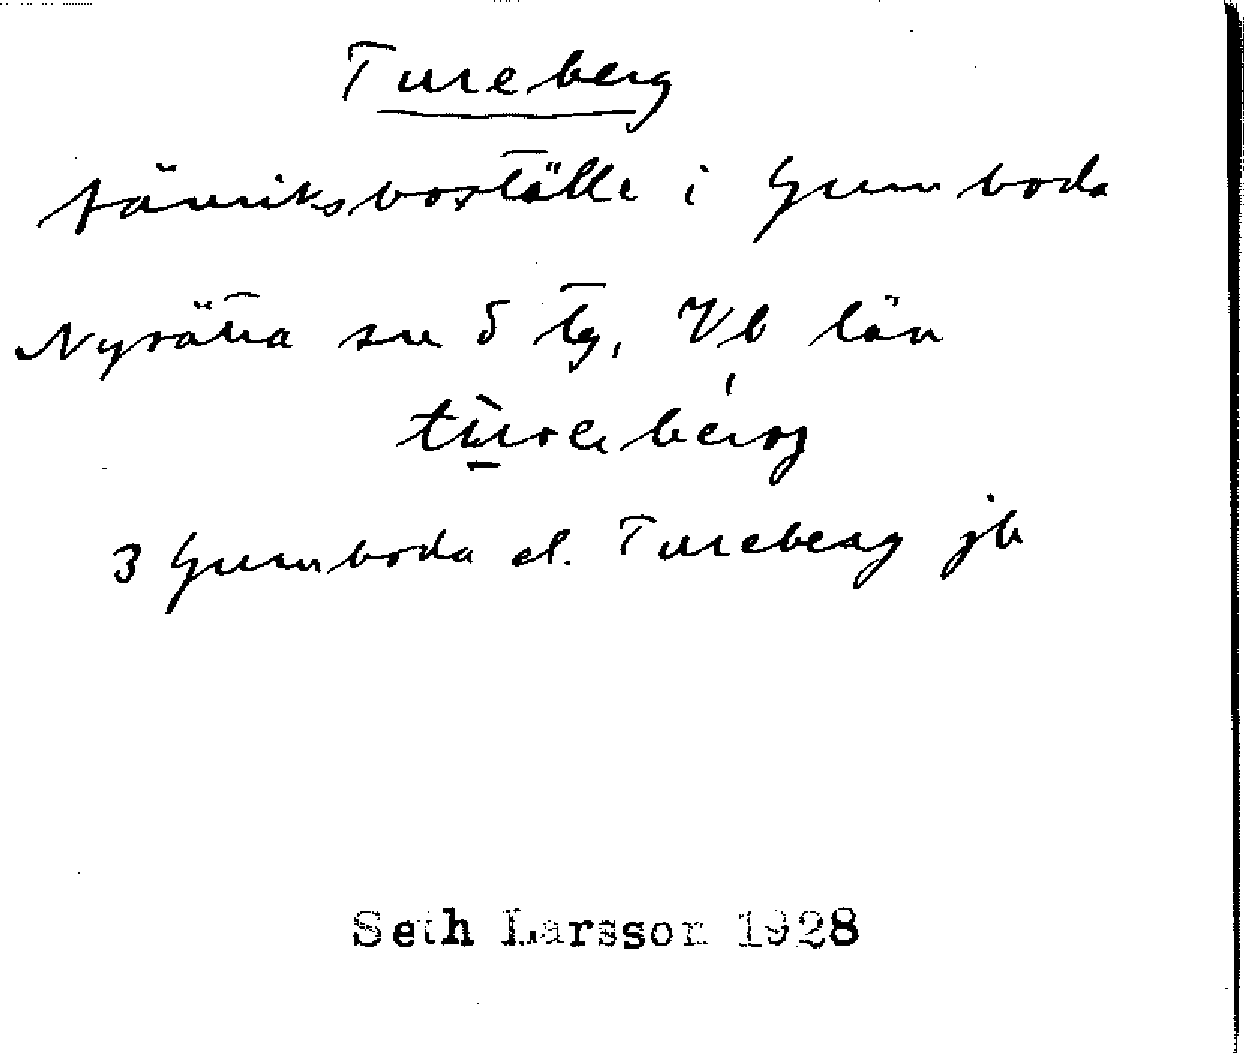 Tureberg
fänriksboställe i Gumboda
Nysätra sn S tg, Vb län
tureberg
3 Gumboda el. Tureberg jb
Seth Larsson 1928